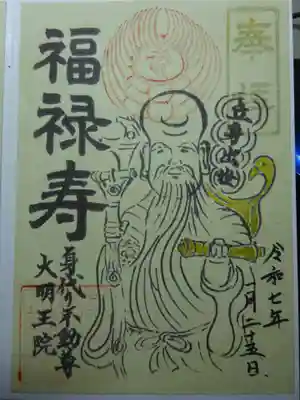 奉
令和七年
一月二十五日
立身出世
福禄寿
身代り不動尊
大明王院